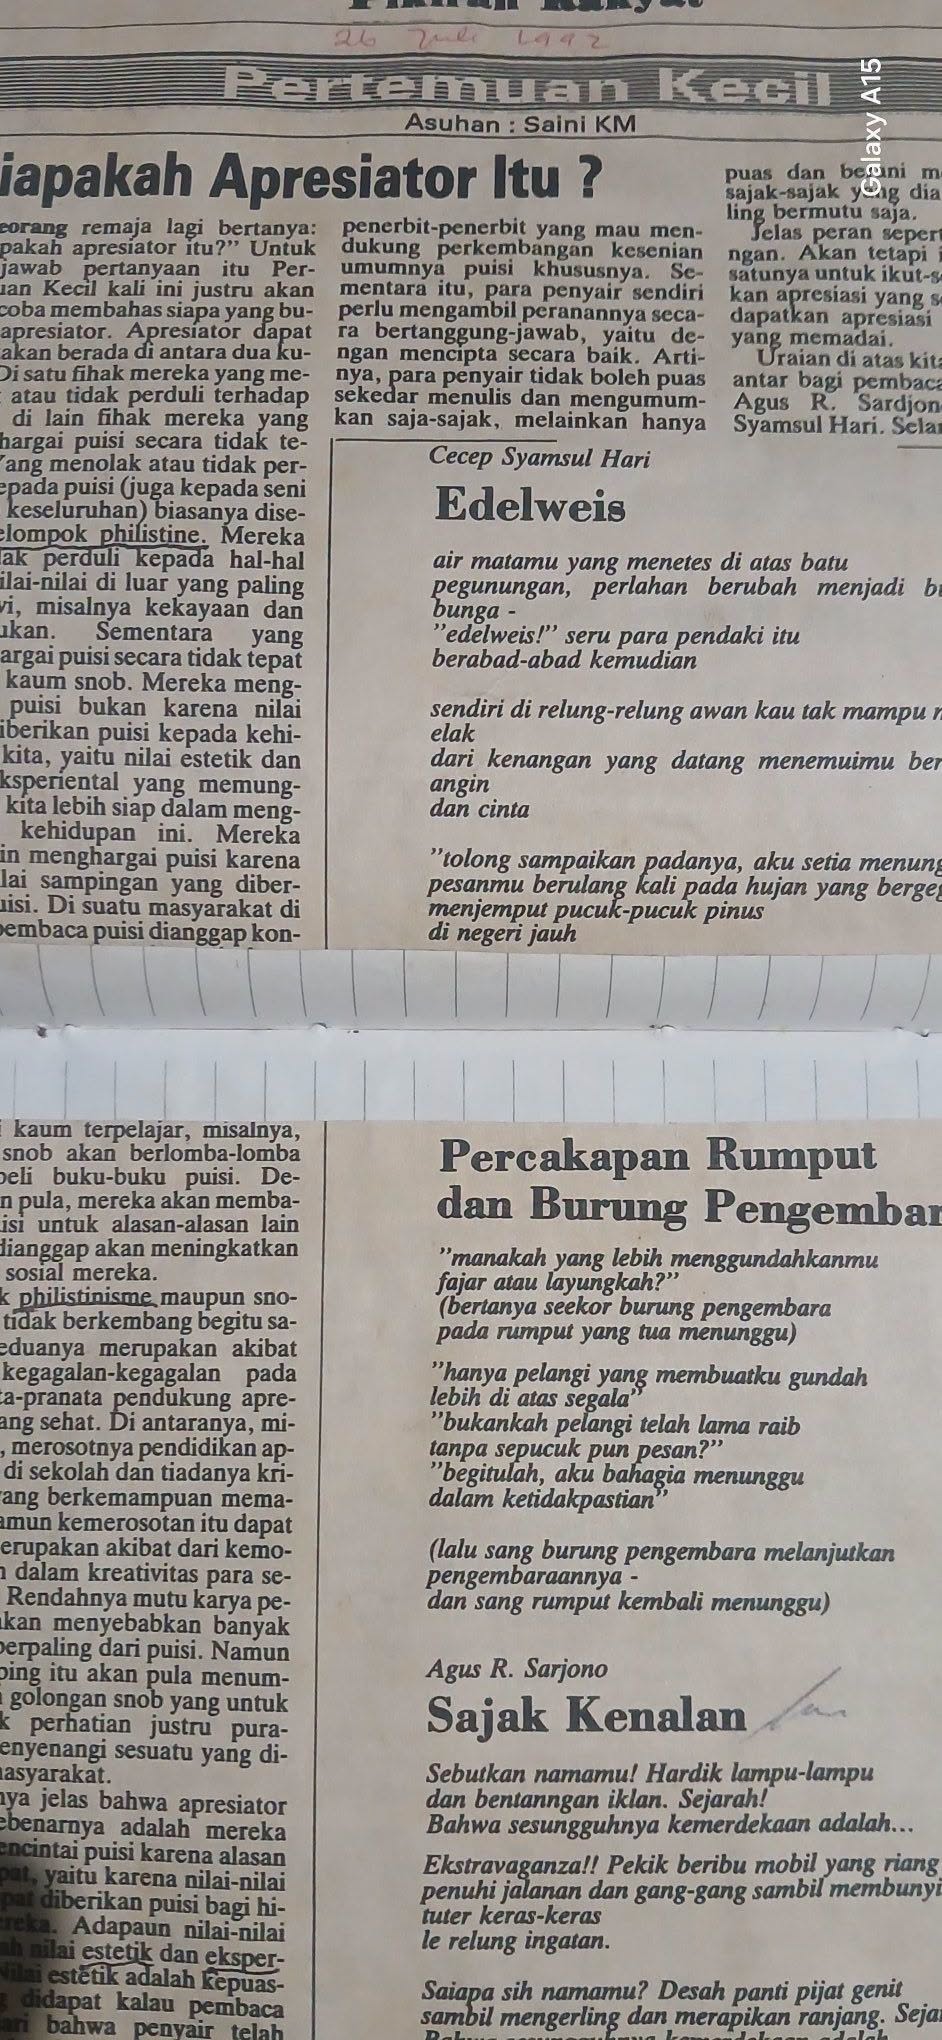 Pikiran Rakyat
26 Juli 1992
Pertemuan Kecil
Asuhan : Saini KM
Galaxy A15
iapakah Apresiator Itu ?
eorang remaja lagi bertanya:
pakah apresiator itu?” Untuk
jawab pertanyaan itu Per-
uan Kecil kali ini justru akan
coba membahas siapa yang bu-
apresiator. Apresiator dapat
akan berada di antara dua ku-
Di satu fihak mereka yang me-
atau tidak perduli terhadap
di lain fihak mereka yang
hargai puisi secara tidak te-
Yang menolak atau tidak per-
epada puisi (juga kepada seni
keseluruhan) biasanya dise-
elompok philistine. Mereka
dak perduli kepada hal-hal
ilai-nilai di luar yang paling
wi, misalnya kekayaan dan
ukan. Sementara yang
argai puisi secara tidak tepat
kaum snob. Mereka meng-
puisi bukan karena nilai
iberikan puisi kepada kehi-
kita, yaitu nilai estetik dan
ksperiental yang memung-
kita lebih siap dalam meng-
kehidupan ini. Mereka
in menghargai puisi karena
lai sampingan yang diber-
uisi. Di suatu masyarakat di
pembaca puisi dianggap kon-
i kaum terpelajar, misalnya,
snob akan berlomba-lomba
beli buku-buku puisi. De-
n pula, mereka akan memba-
isi untuk alasan-alasan lain
dianggap akan meningkatkan
sosial mereka.
k philistinisme maupun sno-
tidak berkembang begitu sa-
eduanya merupakan akibat
kegagalan-kegagalan pada
ta-pranata pendukung apre-
ang sehat. Di antaranya, mi-
, merosotnya pendidikan ap-
di sekolah dan tiadanya kri-
yang berkemampuan mema-
amun kemerosotan itu dapat
erupakan akibat dari kemo-
n dalam kreativitas para se-
Rendahnya mutu karya pe-
akan menyebabkan banyak
berpaling dari puisi. Namun
ping itu akan pula menum-
n golongan snob yang untuk
k perhatian justru pura-
enyenangi sesuatu yang di-
masyarakat.
nya jelas bahwa apresiator
ebenarnya adalah mereka
encintai puisi karena alasan
pat, yaitu karena nilai-nilai
pat diberikan puisi bagi hi-
reka. Adapaun nilai-nilai
ah nilai estetik dan eksper-
Nilai estetik adalah kepuas-
g didapat kalau pembaca
ari bahwa penyair telah
penerbit-penerbit yang mau men-
dukung perkembangan kesenian
umumnya puisi khususnya. Se-
mentara itu, para penyair sendiri
perlu mengambil peranannya seca-
ra bertanggung-jawab, yaitu de-
ngan mencipta secara baik. Arti-
nya, para penyair tidak boleh puas
sekedar menulis dan mengumum-
kan saja-sajak, melainkan hanya
puas dan berani m
sajak-sajak yang dia
ling bermutu saja.
Jelas peran sepert
ngan. Akan tetapi i
satunya untuk ikut-s
kan apresiasi yang s
dapatkan apresiasi
yang memadai.
Uraian di atas kita
antar bagi pembaca
Agus R. Sardjon
Syamsul Hari. Selar
Cecep Syamsul Hari
Edelweis
air matamu yang menetes di atas batu
pegunungan, perlahan berubah menjadi bu
bunga -
”edelweis!” seru para pendaki itu
berabad-abad kemudian
sendiri di relung-relung awan kau tak mampu m
elak
dari kenangan yang datang menemuimu ber
angin
dan cinta
”tolong sampaikan padanya, aku setia menung
pesanmu berulang kali pada hujan yang bergeg
menjemput pucuk-pucuk pinus
di negeri jauh
Percakapan Rumput
dan Burung Pengembar
”manakah yang lebih menggundahkanmu
fajar atau layungkah?”
(bertanya seekor burung pengembara
pada rumput yang tua menunggu)
”hanya pelangi yang membuatku gundah
lebih di atas segala”
”bukankah pelangi telah lama raib
tanpa sepucuk pun pesan?”
”begitulah, aku bahagia menunggu
dalam ketidakpastian”
(lalu sang burung pengembara melanjutkan
pengembaraannya -
dan sang rumput kembali menunggu)
Agus R. Sarjono
Sajak Kenalan
Sebutkan namamu! Hardik lampu-lampu
dan bentanngan iklan. Sejarah!
Bahwa sesungguhnya kemerdekaan adalah...
Ekstravaganza!! Pekik beribu mobil yang riang
penuhi jalanan dan gang-gang sambil membunyi
tuter keras-keras
le relung ingatan.
Saiapa sih namamu? Desah panti pijat genit
sambil mengerling dan merapikan ranjang. Seja
Bahwa sesungguhnya kemerdekaan adalah